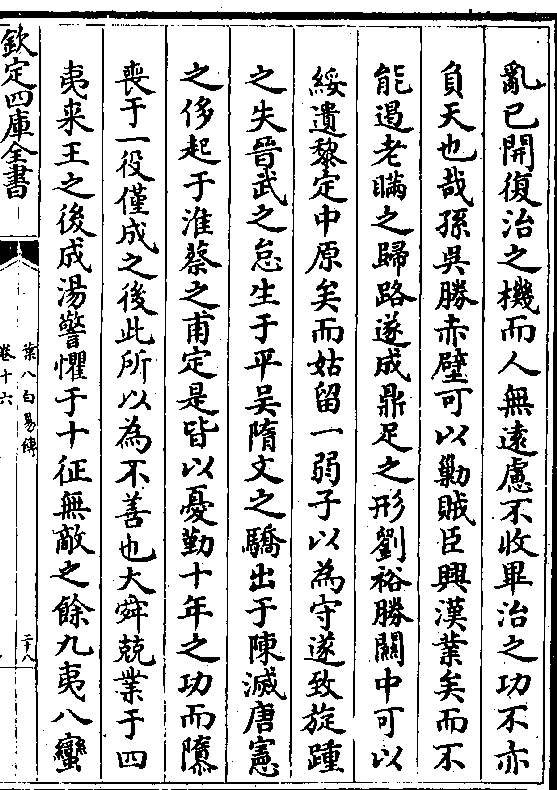 亂已開復治之機而人無遠慮不收畢治之功不亦
負天也哉孫吳勝赤壁可以勦賊臣興漢業矣而不
能遏老瞞之歸路遂成鼎足之形劉裕勝關中可以
綏遺黎定中原矣而姑留一弱子以為守遂致旋踵
之失晉武之怠生于平吳隋文之驕出于陳滅唐憲
之侈起于淮蔡之甫定是皆以憂勤十年之功而隳
喪于一役僅成之後此所以為不善也大舜兢業于四
夷来王之後成湯警懼于十征無敵之餘九夷八蠻
欽定四庫全書
葉八白易傳
卷十六
二十八